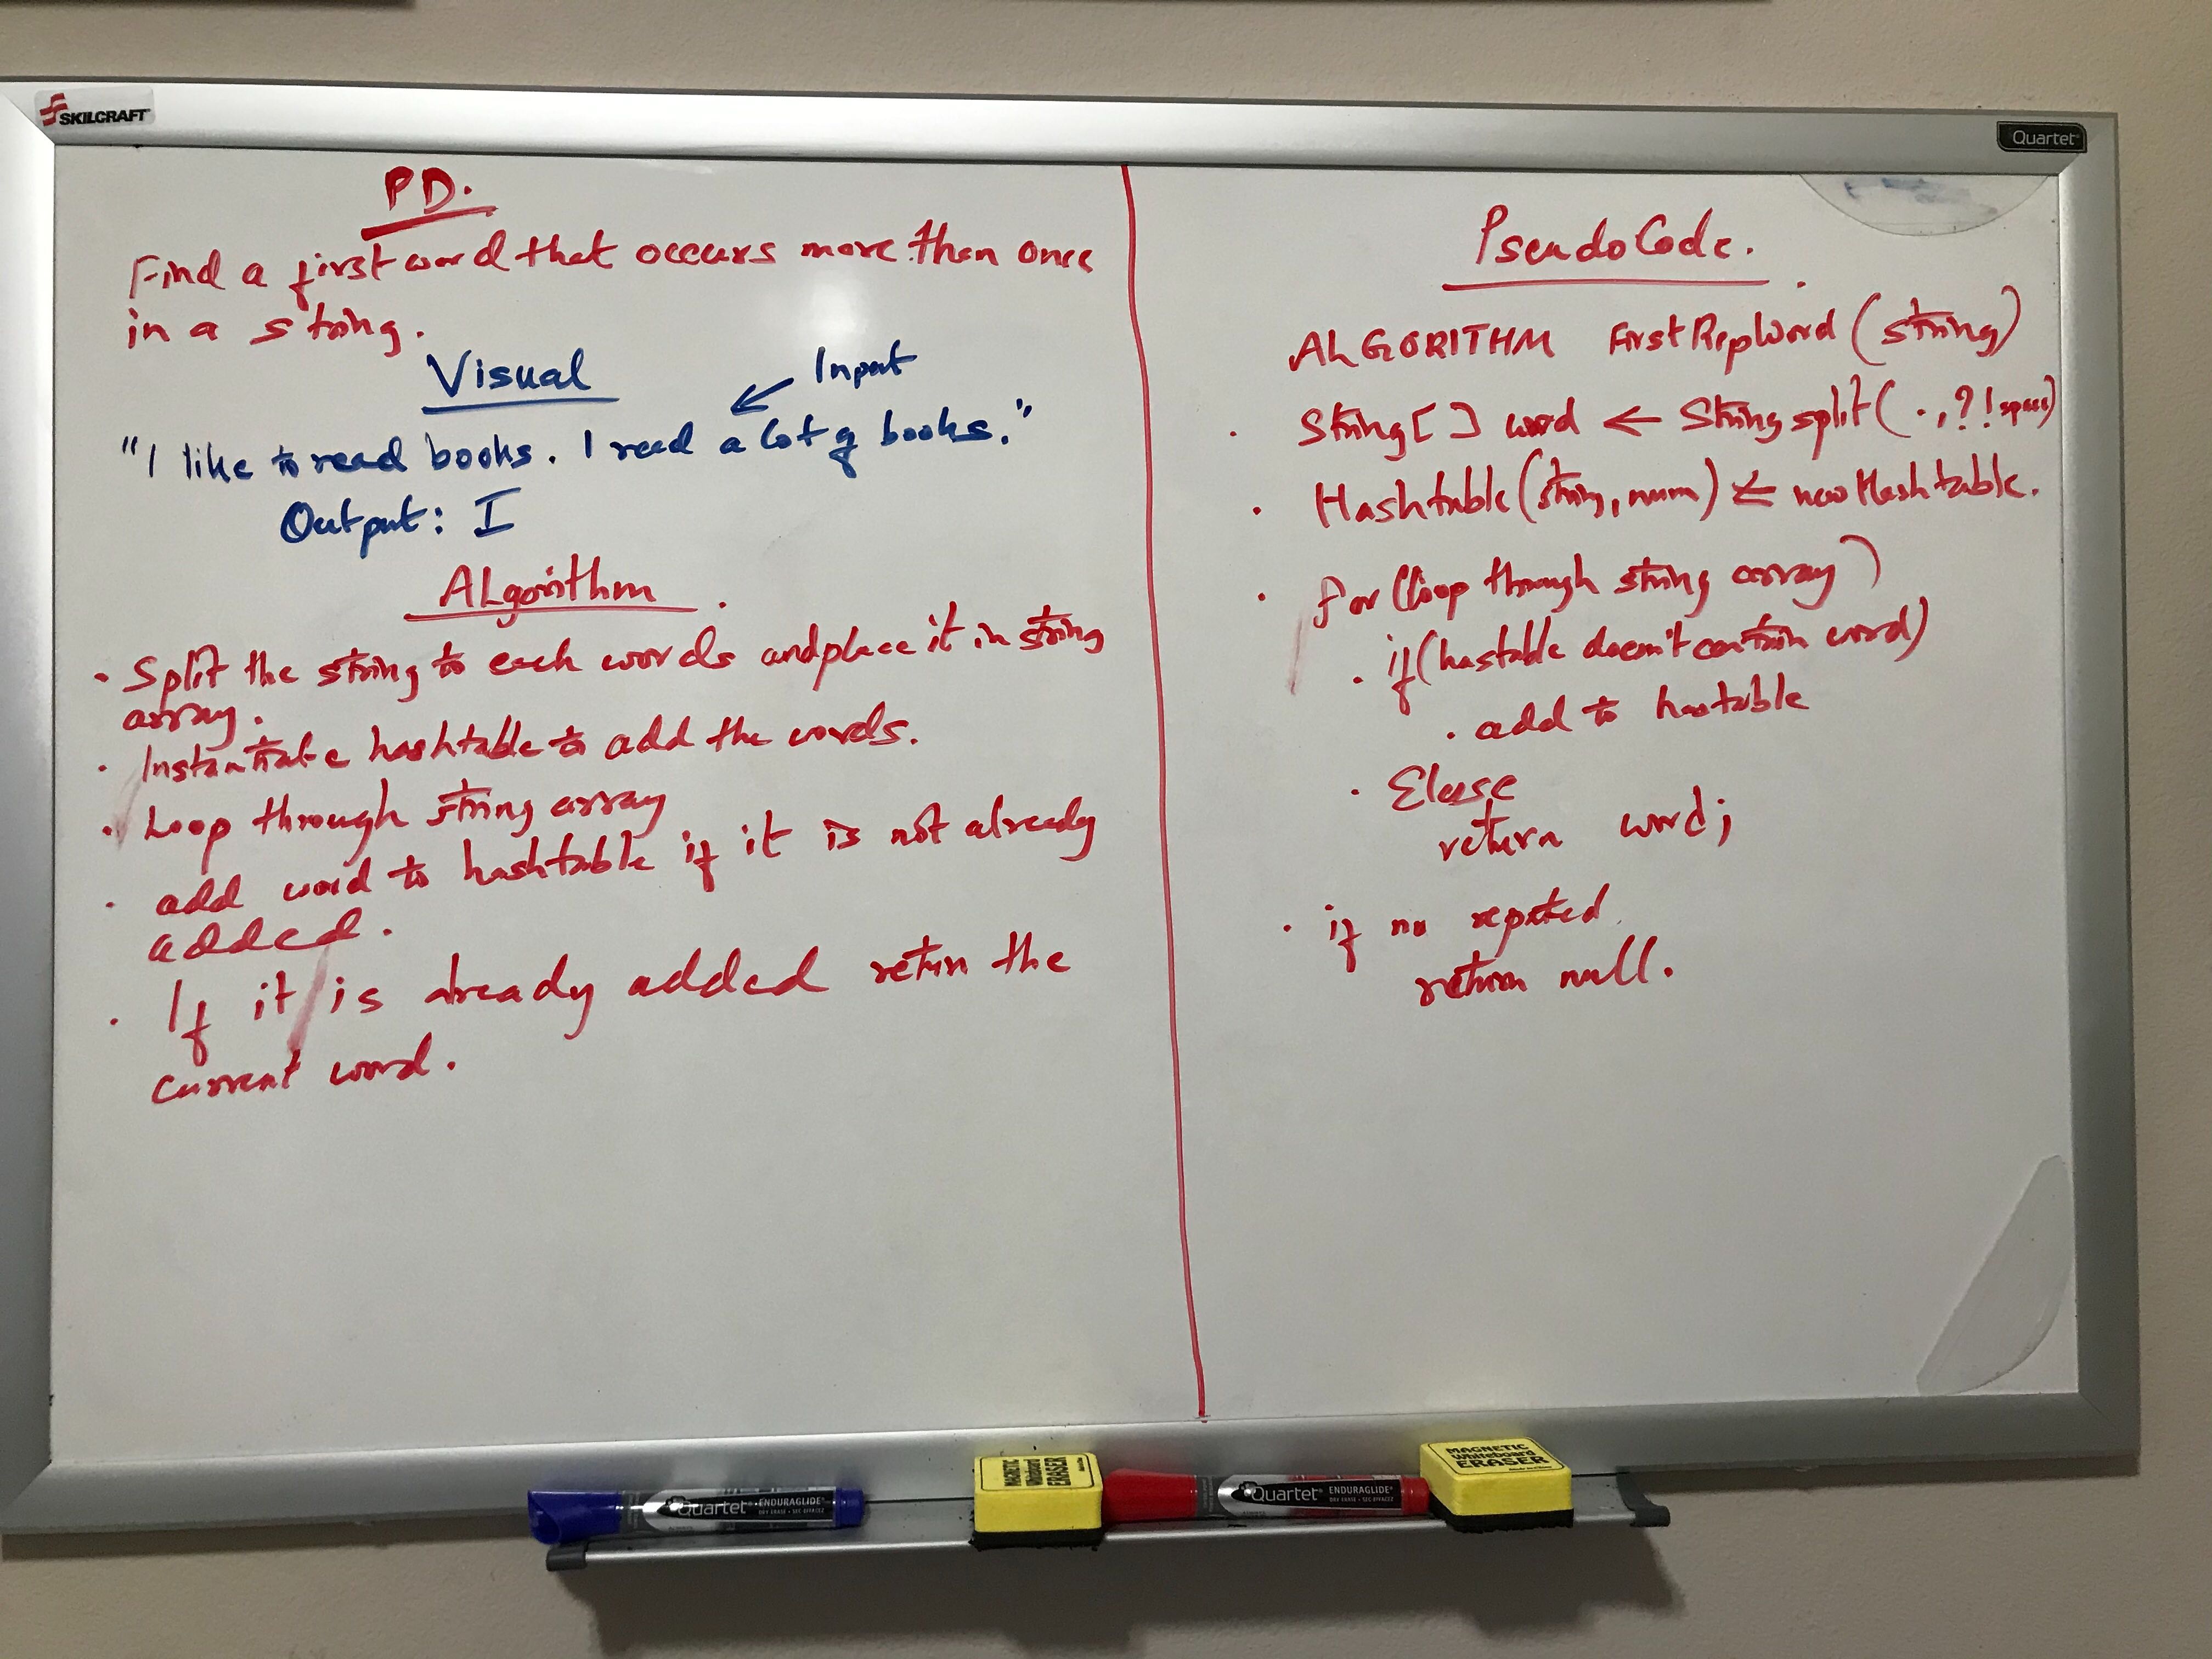 SKILCRAFT
Quartet
PD.
Find a first word that occurs more than once
in a string.
Visual
Input
"I like to read books. I read a lot of books."
Output: I
ALgorithm
· Split the string to each words and place it in string
array.
· Instantiate hashtable to add the words.
· Loop through string array
· add word to hashtable if it is not already
added.
· If it is already added return the
current word.
PseudoCode.
ALGORITHM FirstRepWord (string)
· String[ ] word ← String split( . , ? ! space)
· Hashtable(string, num) ← new Hashtable.
· for (loop through string array)
· if (hastable doesn't contain word)
· add to hastable
· Elsse
return word;
· if no repeted
return null.
Quartet ENDURAGLIDE
DRY ERASE • SEC EFFACEZ
MAGNETIC
Whiteboard
ERASER
Quartet ENDURAGLIDE
DRY ERASE • SEC EFFACEZ
MAGNETIC
Whiteboard
ERASER